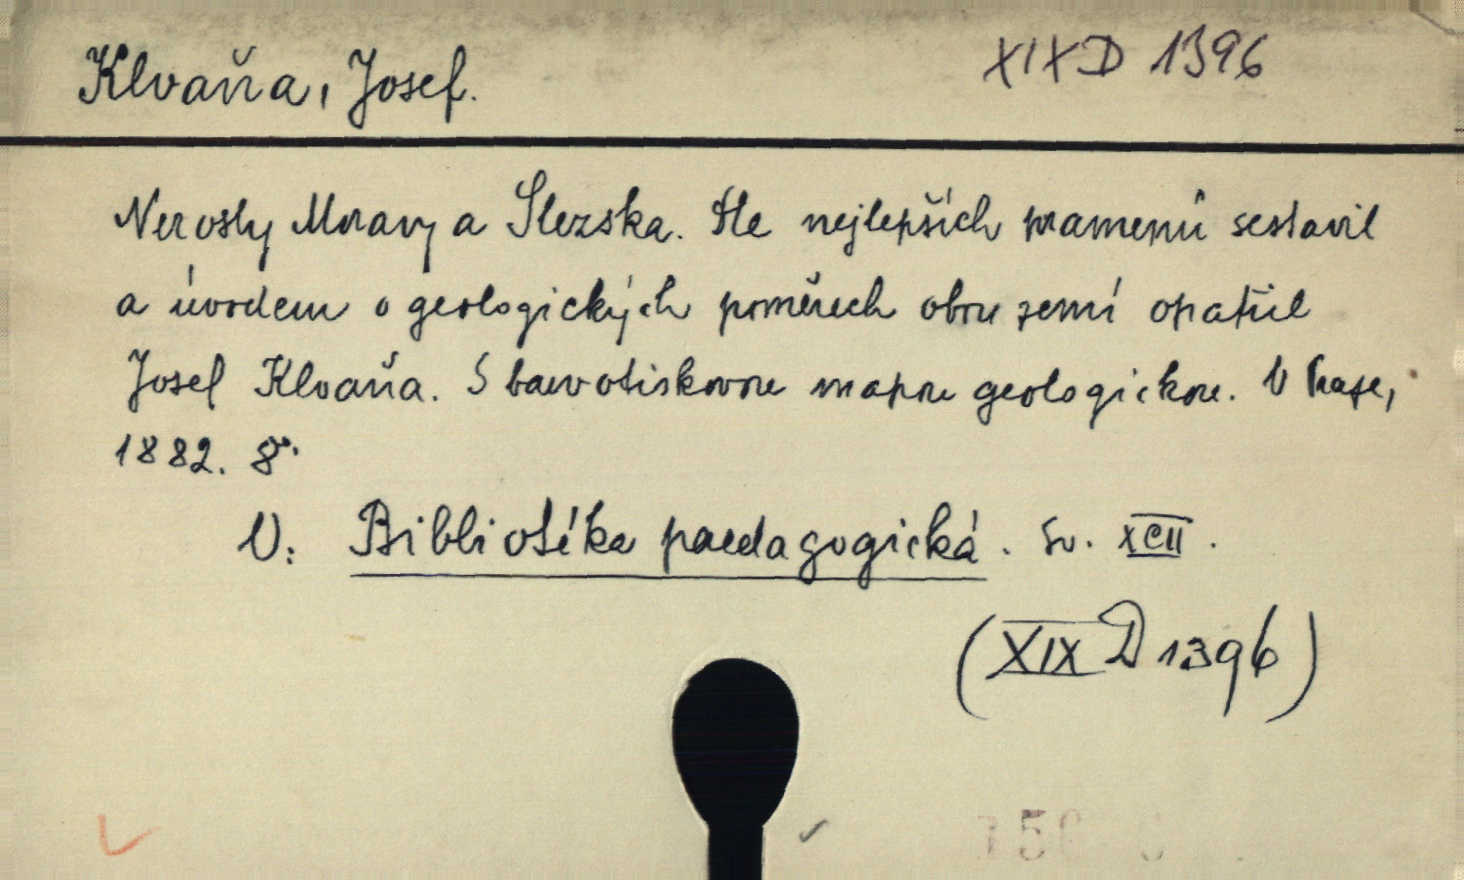 Klvaňa, Josef.
XIX D 1396
Nerosty Moravy a Slezska. Dle nejlepších pramenů sestavil
a úvodem o geologických poměrech obou zemí opatřil
Josef Klvaňa. S barvotiskovou mapou geologickou. V Praze,
1882. 8°.
V: Bibliotéka paedagogická. Sv. XCII.
(XIX D 1396)